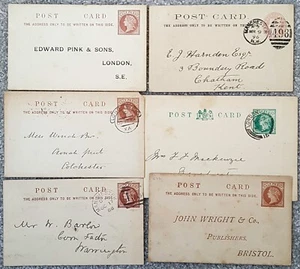 POST CARD
THE ADDRESS ONLY TO BE WRITTEN ON THIS SIDE.
EDWARD PINK & SONS,
LONDON,
S.E.
POST CARD
THE ADDRESS ONLY TO BE WRITTEN ON THIS SIDE
498
E. J. Harnden Esqr
3 Boundary Road
Chatham
Kent
POST CARD
THE ADDRESS ONLY TO BE WRITTEN ON THIS SIDE.
Messrs
Colchester
POST CARD
THE ADDRESS ONLY TO BE WRITTEN ON THIS SIDE
Mackenzie
POST CARD
THE ADDRESS ONLY TO BE WRITTEN ON THIS SIDE.
Mr W. Barlow
Warrington
POST CARD
THE ADDRESS ONLY TO BE WRITTEN ON THIS SIDE.
JOHN WRIGHT & Co.
PUBLISHERS,
BRISTOL.